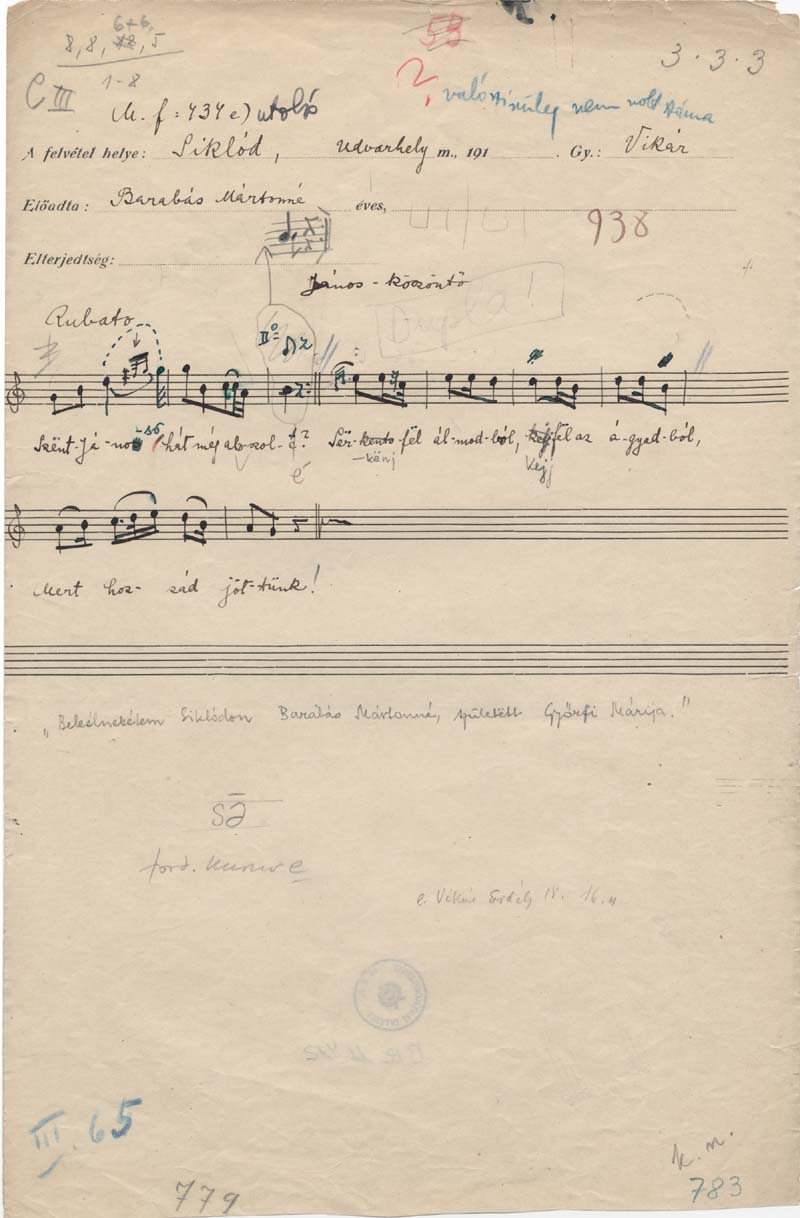 6+6,
8, 8, 5
1-8
53
3 . 3 . 3
C III
M. f: 434 e) utolsó
?, valószinüleg nem volt száma
A felvétel helye: Siklód, Udvarhely m., 191 . Gy.: Vikár
Előadta: Barabás Mártonné éves,
938
Elterjedtség:
János-köszöntő
Dupla!
Rubato
IIº
Szent-Já-nos hát még aluszol-é?
Sër-kento-fël ál-mod-ból, fël az á-gyad-ból,
-só
-kënj
Kejj
é
Mert hoz-zád jöt-tünk!
„Beleélnekëltem Siklódon Barabás Mártonné, születëtt Györfi Márija."
ford. kurrens
l. Vikár Erdély IV. 16.
III. 65
779
k. m.
783